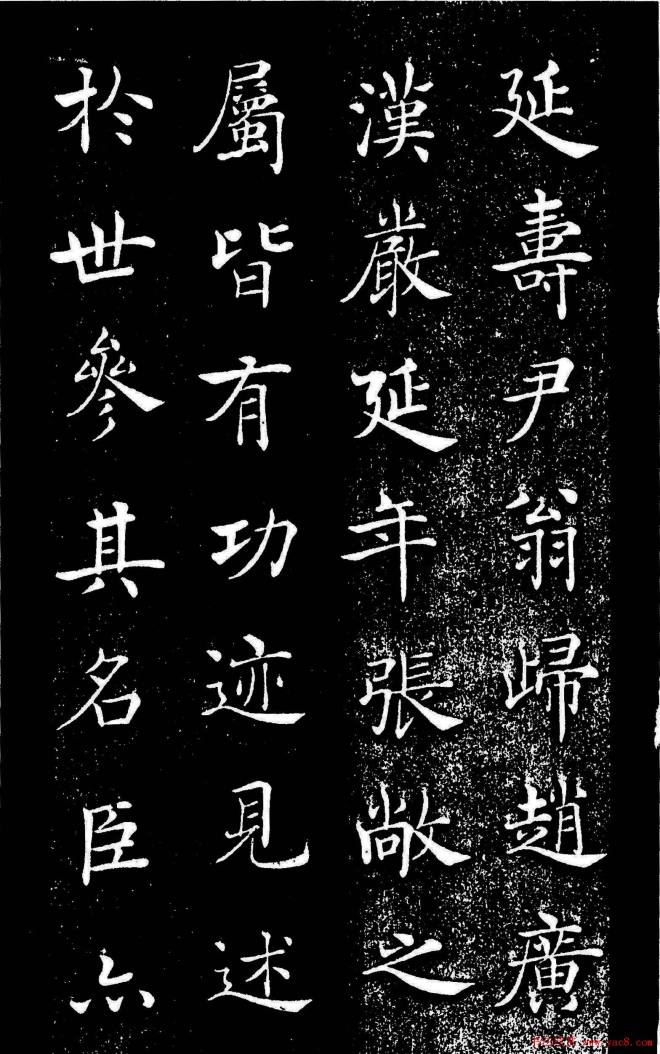 延壽尹翁歸趙廣
漢嚴延年張敞之
屬皆有功迹見述
於世參其名臣亦
www.yac8.com